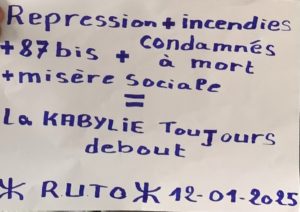 Repression + incendies
+ 87 bis + condamnés
à mort
+ misère sociale
=
La KABYLIE TOUJOURS
debout
ⵣ RUTO ⵣ 12-01-2025